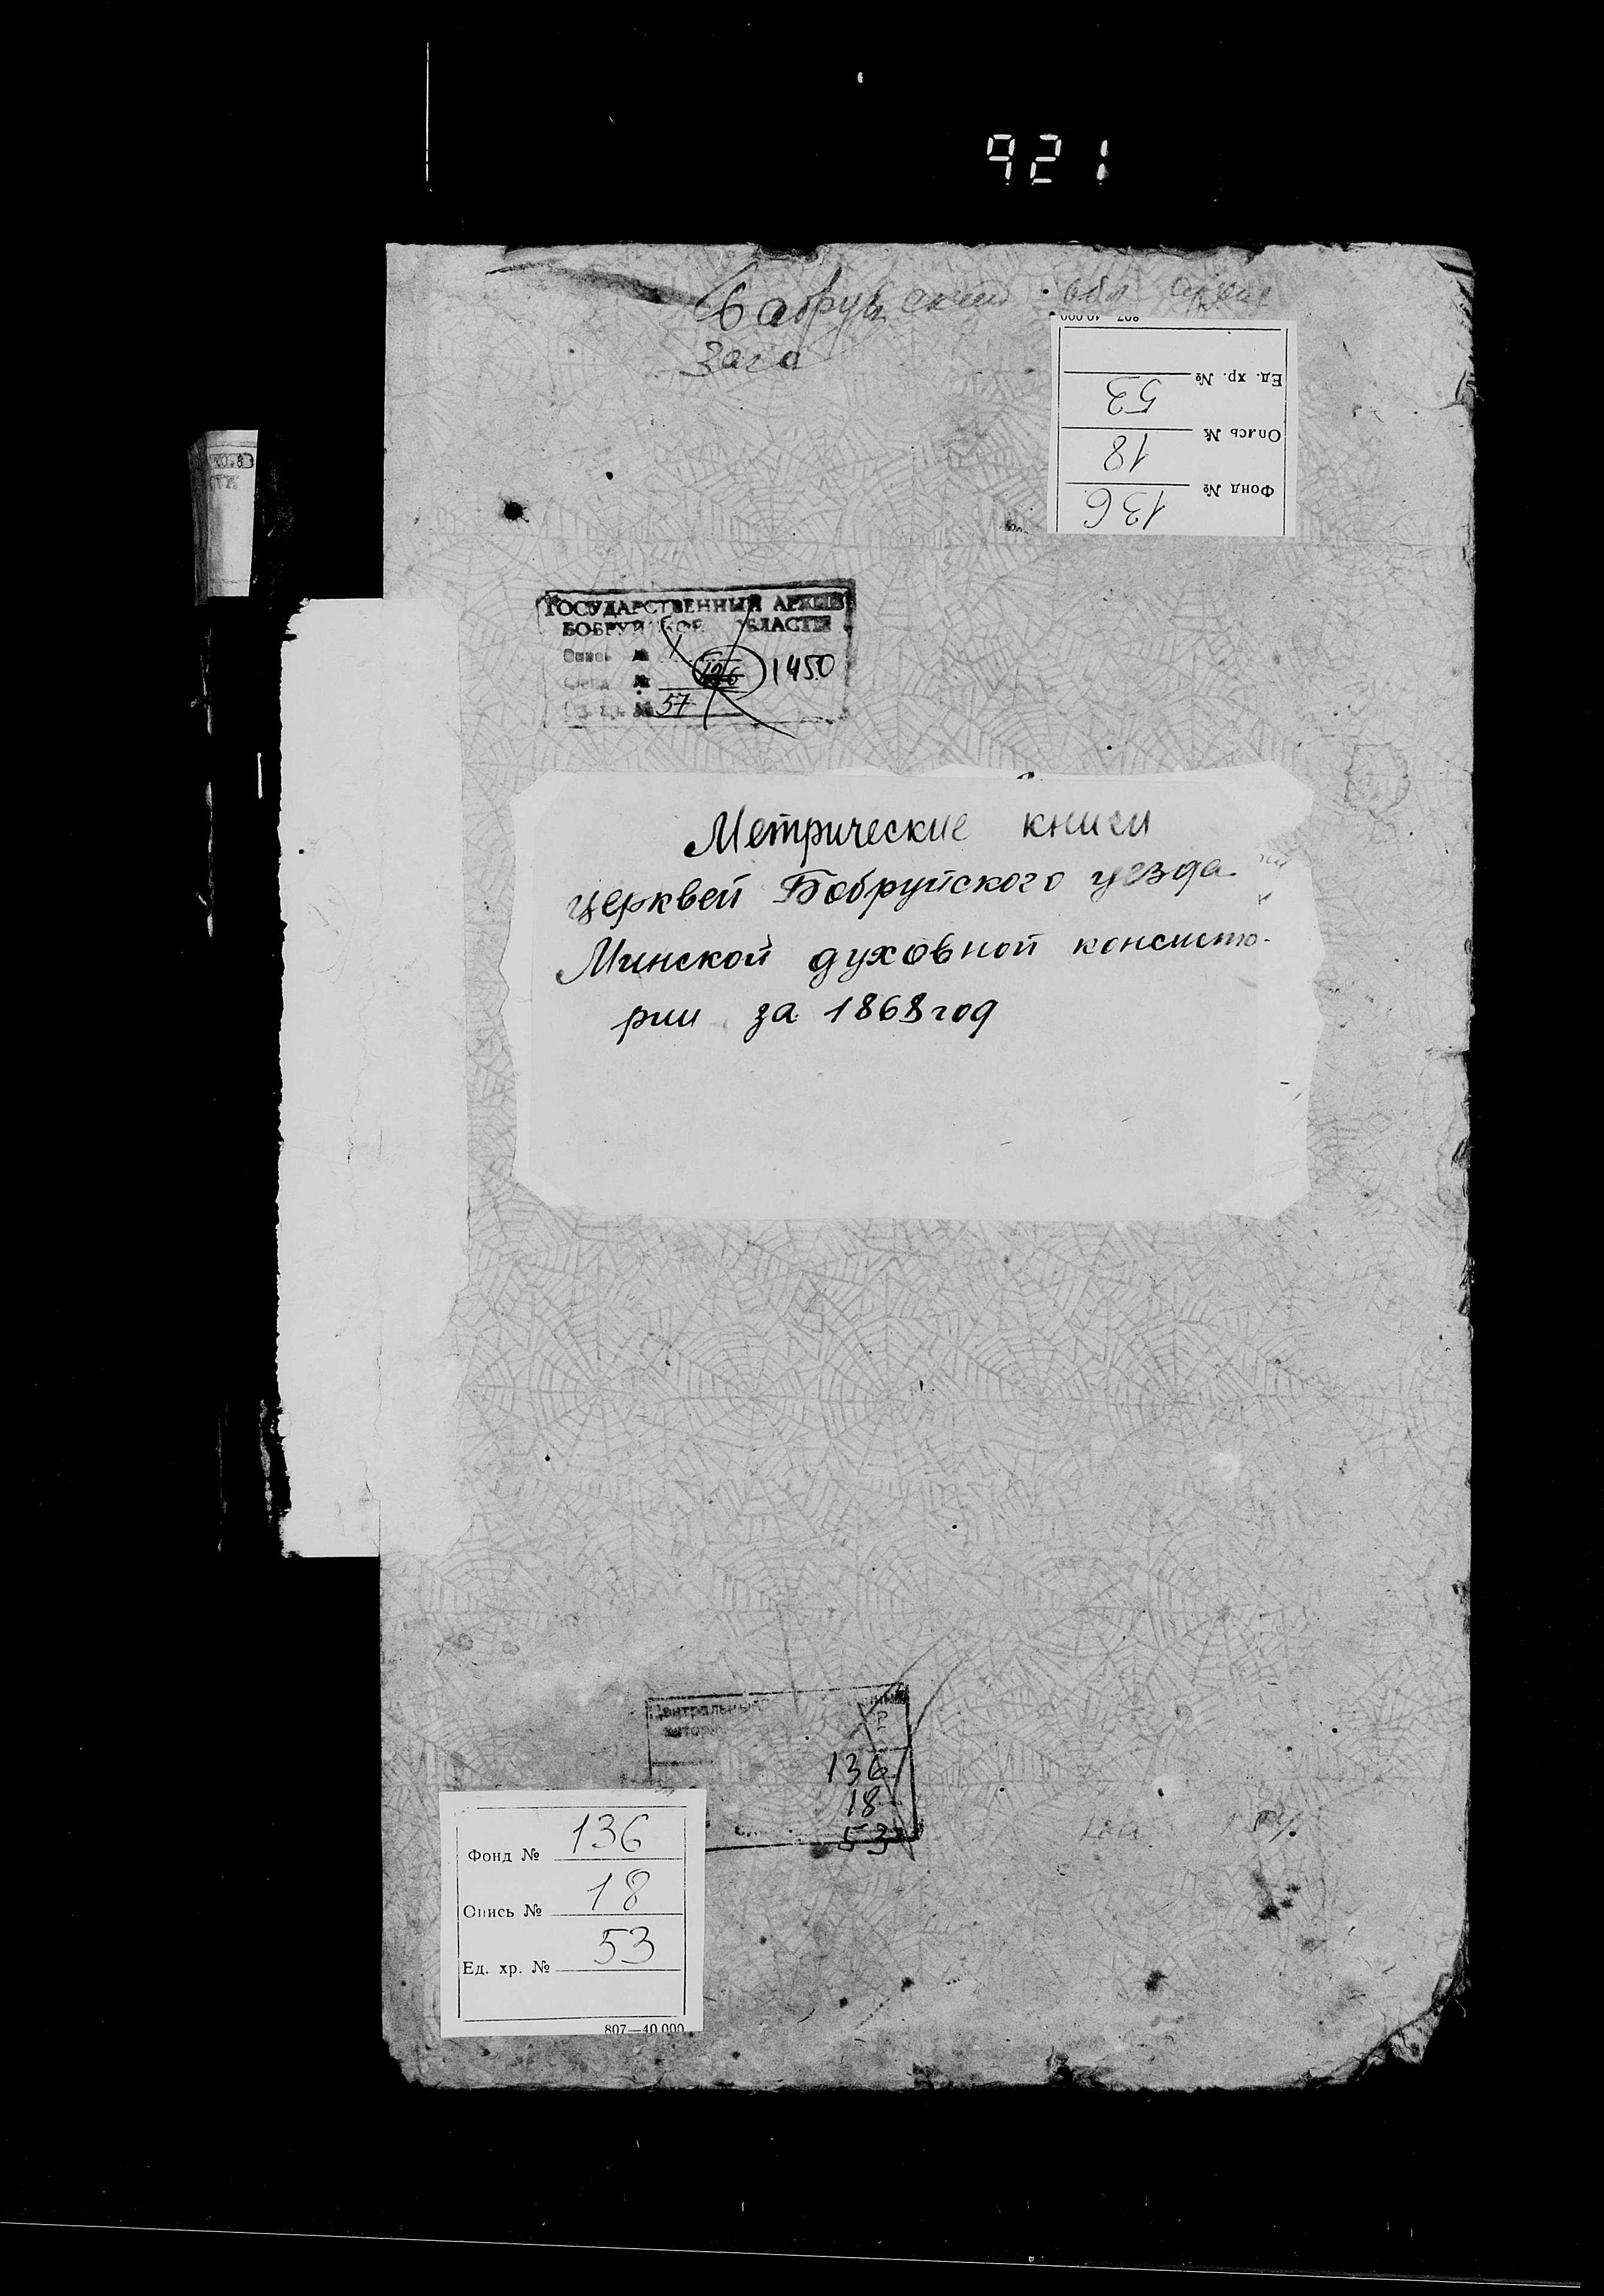 921
807—40.000
Ед. хр. № 53
Опись № 18
Фонд № 136
ГОСУДАРСТВЕННЫЙ АРХИВ
БОБРУЙСКОЙ ОБЛАСТИ
Опись №
Фонд № 1450
Ед. хр. № 57
Метрические книги
церквей Бобруйского уезда
Минской духовной консисто-
рии за 1868 год
Центральный
136
18
53
Фонд № 136
Опись № 18
Ед. хр. № 53
807—40.000